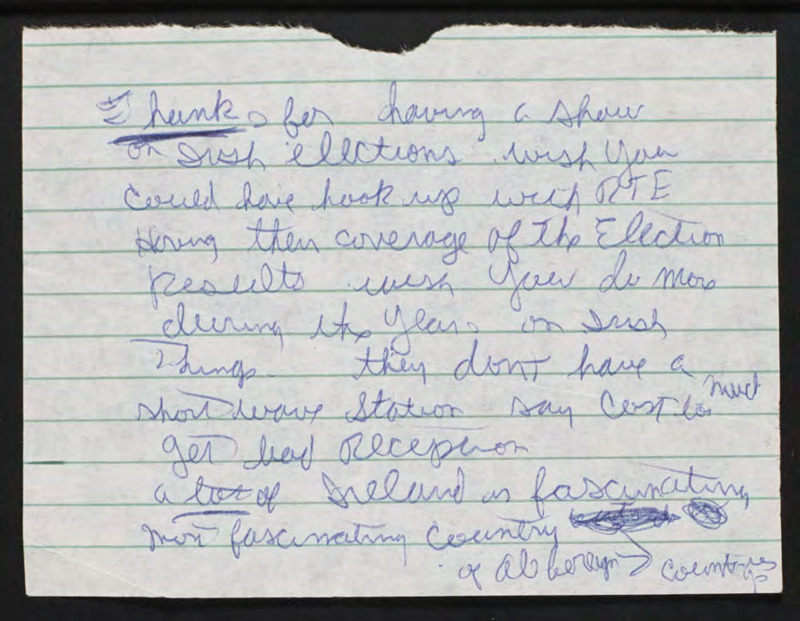 Thanks for having a show
on Irish elections wish you
could have hook up with RTE
Hering their coverage of the Election
Results wish you do more
during the year on Irish
Things. they dont have a
short wave Station say Cost to much
get bad Reception
a lot of Ireland is fascinating
most fascinating Country
of all foreign countries